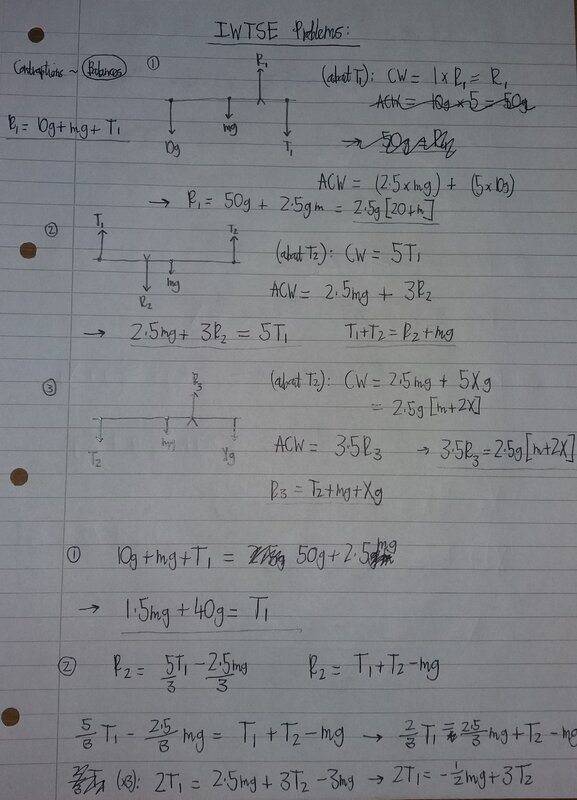 IWTSE Problems:
Contraptions ~ Balances
①
R₁
10g
mg
T₁
R₁ = 10g + mg + T₁
(about T₁): CW = 1 × R₁ = R₁
ACW = 10g × 5 = 50g
→ 50g = R₁
ACW = (2.5 × mg) + (5 × 10g)
→ R₁ = 50g + 2.5gm = 2.5g[20+m]
②
T₁
T₂
R₂
mg
(about T₂): CW = 5T₁
ACW = 2.5mg + 3R₂
→ 2.5mg + 3R₂ = 5T₁
T₁ + T₂ = R₂ + mg
③
R₃
T₂
mg
Xg
(about T₂): CW = 2.5mg + 5Xg
= 2.5g[m+2X]
ACW = 3.5R₃ → 3.5R₃ = 2.5g[m+2X]
R₃ = T₂ + mg + Xg
① 10g + mg + T₁ = 50g + 2.5mg
→ 1.5mg + 40g = T₁
② R₂ = 5T₁/3 - 2.5mg/3 R₂ = T₁ + T₂ - mg
5/3 T₁ - 2.5/3 mg = T₁ + T₂ - mg → 2/3 T₁ = 2.5/3 mg + T₂ - mg
(x3): 2T₁ = 2.5mg + 3T₂ - 3mg → 2T₁ = -½mg + 3T₂